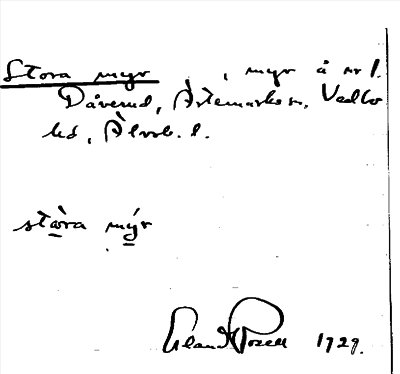 Stora myr , myr å nr 1.
Dåverud, Ärtemarks sn, Vedbo
hd, Älvsb. l.
stòra mýr
Erland Rosell 1929.